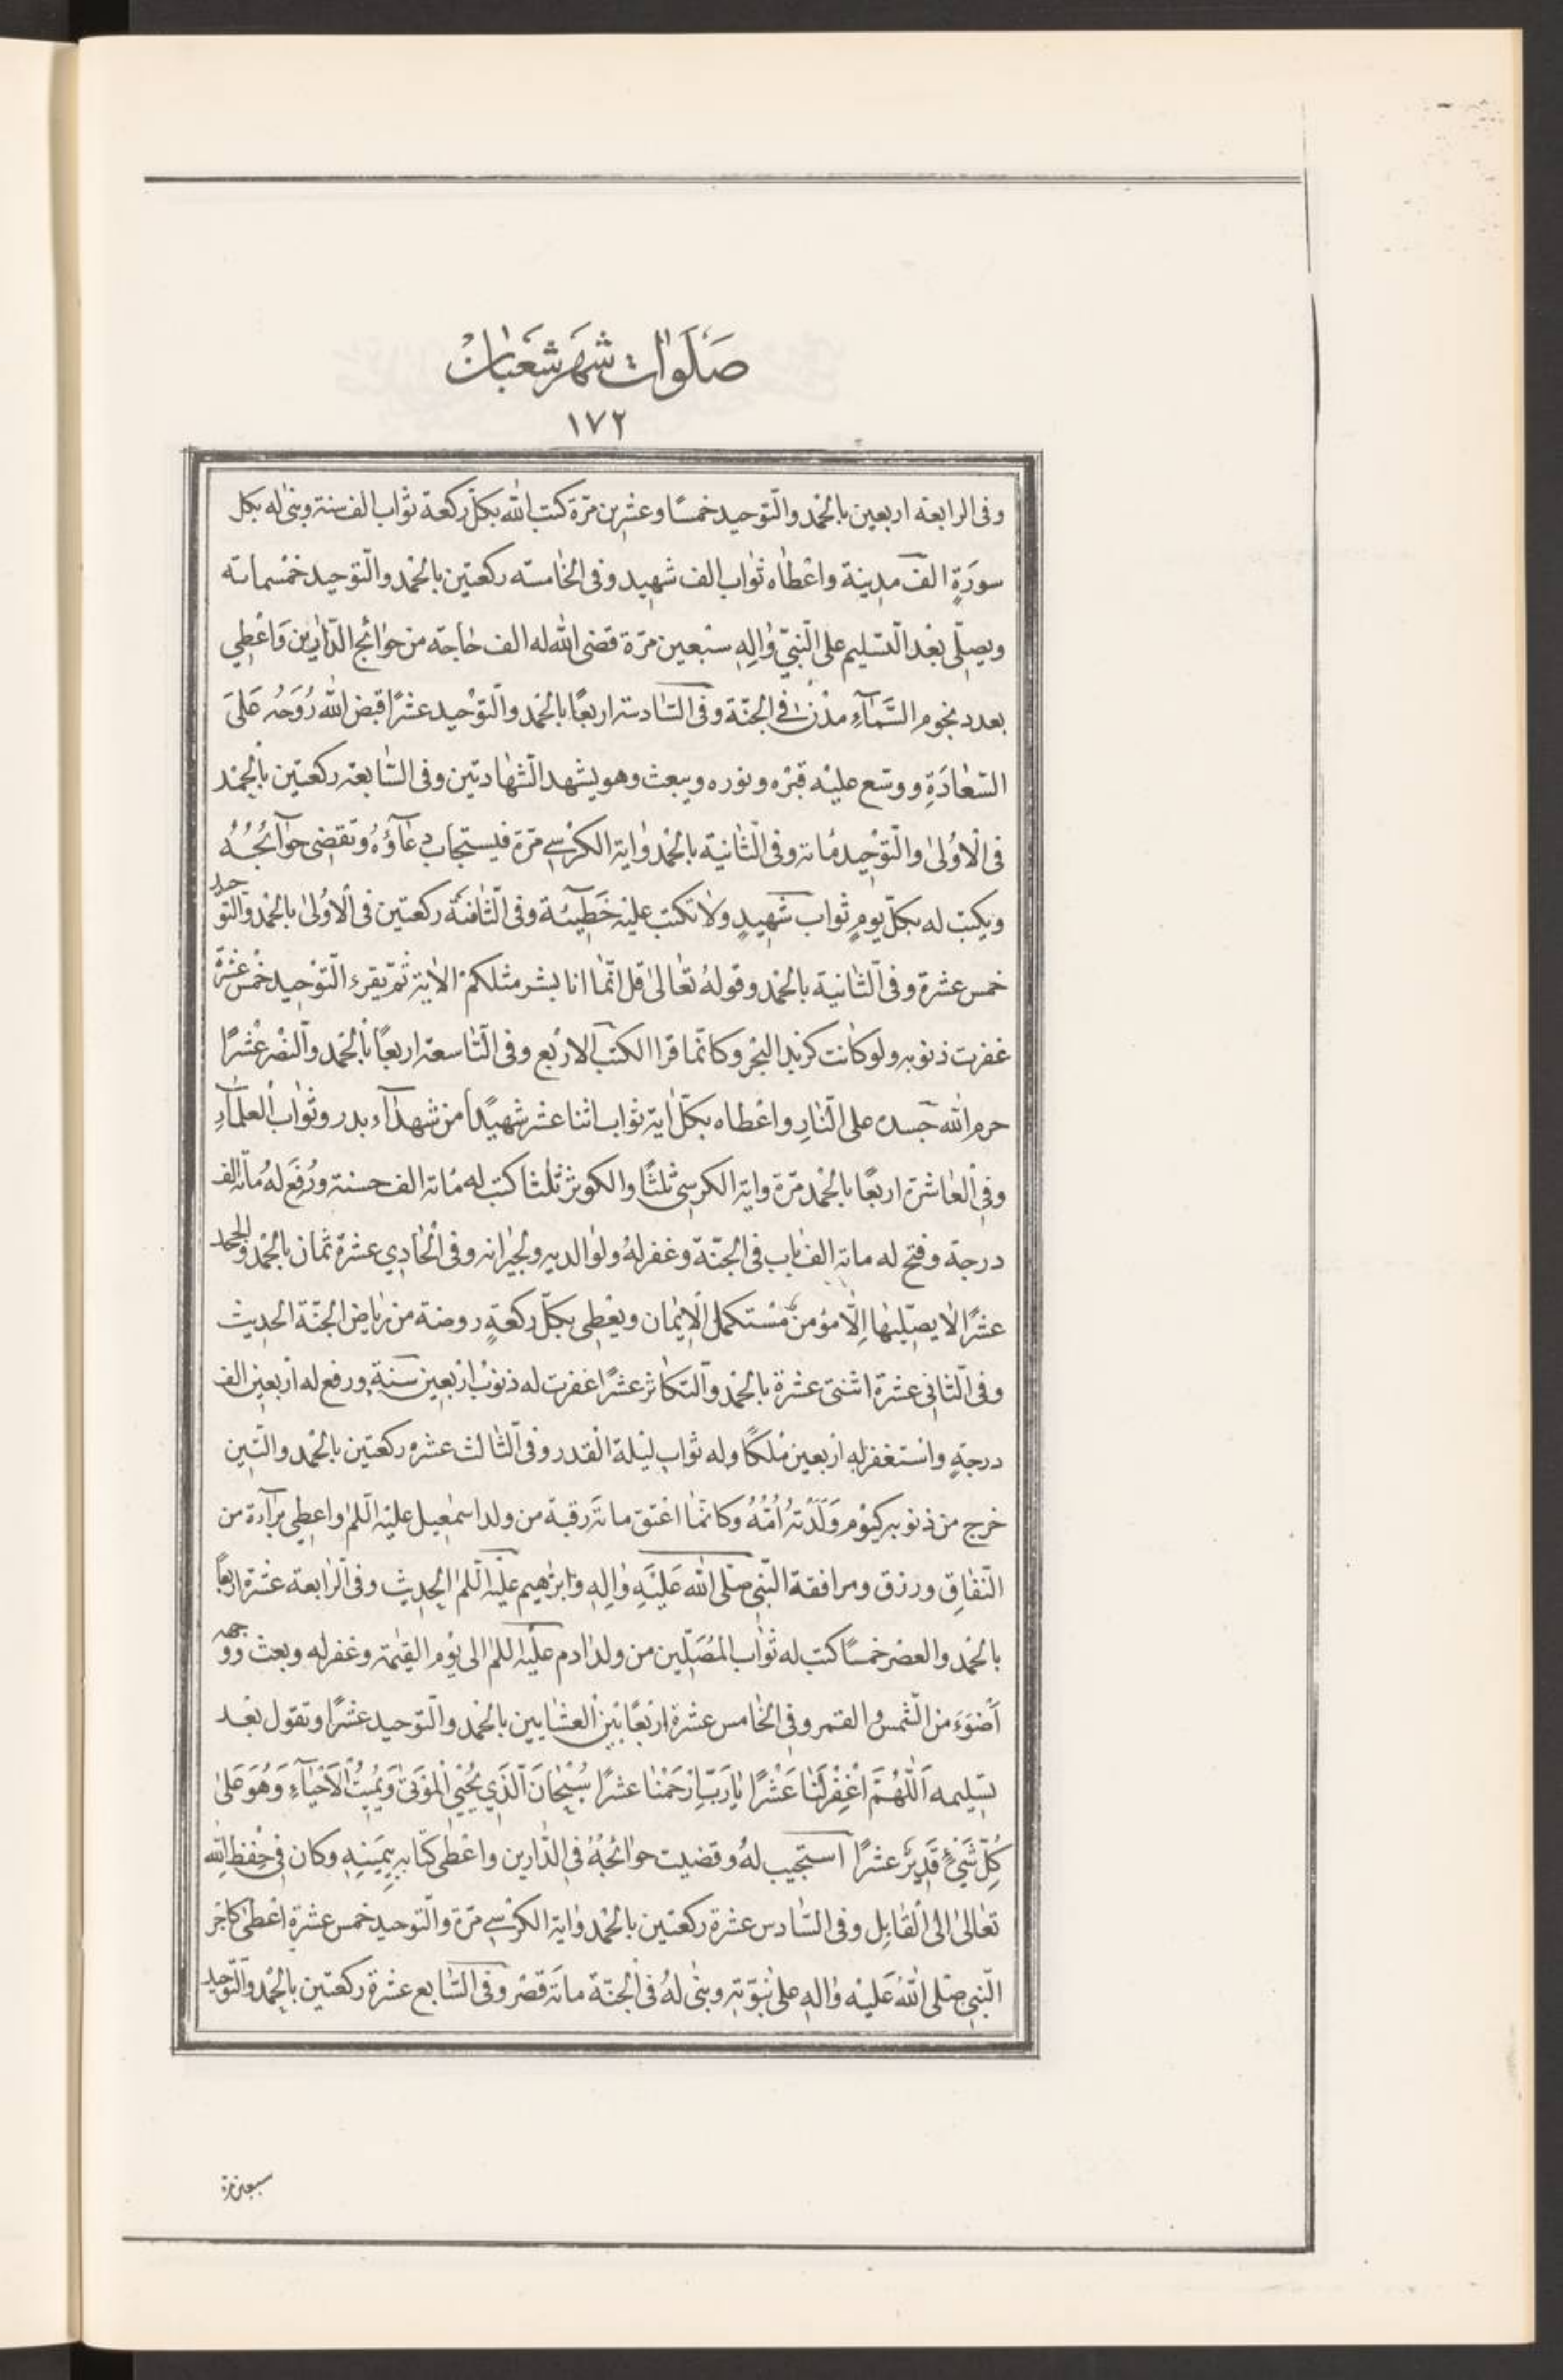 صَلَواتُ شَهرِ شَعْبانْ
١٧٢
وفى الرابعة اربعين بالحْمد والتّوحيد خمسًا وعشرين مرّة كتب اللّه بكلّ ركعة ثواب الف سنة وبنى له بكل
سورَةٍ الف مدينة واعْطاه ثواب الف شهيد وفى الخامسته ركعتين بالحْمد والتّوحيد خمْسماته
ويصلّى بعْد التّسليم على النّبىّ واٰلِهِ سبْعين مرّة قضى اللّه له الف حاجة من حوائج الدّارين وَاعْطِي
بعدد نجوم السَّماءِ مدْنًا فى الجنّة وفى السّادسة اربعًا بالحْمد والتّوْحيد عشرًا قبض اللّه رُوحَهُ عَلىَ
السّعادَةِ ووسّع عليْه قبْره ونوره ويبعث وهو يشهد الشّهادتين وفى السّابعة ركعتين بالْحمْد
فى الْاوُلى والتّوْحيد مُاتة وفى الثّانية بالحْمد واٰية الكرْسى مرّة فيستجاب دعاۤؤُهُ وتقضى حوآئجُهُ
ويكتب له بكلّ يومٍ ثواب شهيدٍ ولا تكتب عليْه خَطيئة وفى الثّامنة ركعتين فى الاوُلى بالحْمد والتّوحيد
خمس عشرة وفى الثانية بالحْمد وقولهُ تعٰالىٰ قل انّما انا بشر مثلكمْ الاية ثمّ يقرء التّوْحيد خمْس عشرْة
غفرت ذنوبه ولو كانت كزبد البْحْر وكانّما قرا الكتب الارْبع وفى التّاسعة اربعًا بالْحْمد والنصْر عشْرًا
حرم اللّه جَسده على النّارِ واعْطاه بكلّ اية ثواب اثنا عشر شهيًدا من شهدآء بدر وثوابْ العلمآءِ
وفى العاشرة اربعًا بالحْمد مرّة واية الكرسى ثلثًا والكوثر ثلثا كتب له مُاتة الف حسنة ورُفَع لهُ مُاتة الف
درجة وفتح له ماتة الف باب فى الجنّة وغفر لهُ ولوالديه ولجيرانه وفى الْحاديِ عشرة ثمان بالحْمد والجحد
عشرًا لا يصلّيها اِلّا مؤمن مُسْتكمل الاِيمان ويعْطى بكلّ ركعةٍ روضة من رياض الجنّة الحديث
وفى الثّانى عشرة اثنتى عشرة بالحْمد والتكاثر عشرًا غفرت له ذنوبْ ارْبعين سَنة ورفع له ارْبعين الف
درجةٍ واسْتغفر له ارْبعين ملكًا وله ثواب ليْلة الْقدر وفى الثّالث عشره ركعتين بالحْمد والتّين
خرج من ذنوبه كيوْم وَلَدَتهُ اُمُّهُ وكانمّا اعْتق ماتة رقبة من ولد اسمٰعيل عليْه السّلم واعطِى برآءة من
النّفاقِ ورزق ومرافقة النّبى صلّى اللّه عَليْهِ واٰلِهِ وَابرٰهيم عليْه السّلم الحديث وفى الرّابعة عشرة اربعًا
بالحْمد والعصْر خمسًا كتب له ثواب المُصَلّين من ولد اٰدم عليْه السلم الى يوْم القيٰمة وغفر له وبعث ووجهه
أَضوَءَ من الشّمس والقمر وفى الخامس عشرة ارْبعًا بيْن العشايين بالحْمد والتّوحيد عشرًا وتقول بعْد
تسْليمه اَللّهُمَّ اغْفِرْ لَنا عَشْرًا يٰا رَبِّ ارْحَمْنا عشرًا سُبْحانَ الَّذي يُحْيِي الْمَوْتىٰ وَيُميتُ الْاَحْيآءِ وَهُوَ عَلىٰ
كُلِّ شَيْئٍ قَديرٌ عشرًا استجيب لهُ وقضيت حوائجُهُ فى الدّارين واعْطى كتابه بِيَمينِهِ وكان فى حِفْظِ اللّه
تعٰالىٰ الى الْقابِل وفى السّادس عشرة ركعتين بالحْمد واٰية الكرْسى مرّة والتّوحيد خمس عشرة اعْطىٰ كاجْر
النّبى صَلّى اللّهُ عَليْه واٰله علىٰ نبوّته وبنى لهُ فى الجنّة ماتة قصْر وفى السّابع عشرة ركعتين بالحْمد والتّوحيد
سبعين مرة